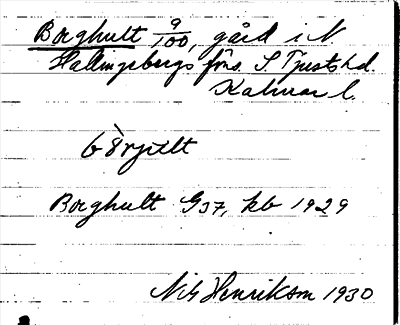 Borghult 9/100, gård i N.
Hallingebergs förs. S Tjusts hd.
Kalmar l.
Borghult G37, kb 1929
Nils Henrikson 1930